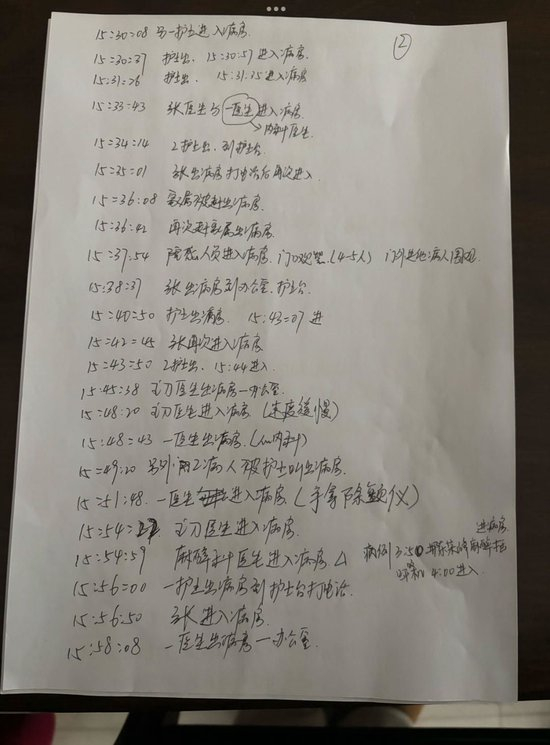 ②
15:30:08 另一护士进入病房.
15:30:37 护士出、15:30:57进入病房
15:31:26 护士出、15:31:35进入病房
15:33:43 张医生与一医生进入病房.
内科医生.
15:34:14 2护士出、到护士台.
15:35:01 张出病房打电话后再次进入.
15:36:08 家属被赶出病房.
15:36:42 再次赶家属出病房.
15:37:54 人员进入病房、门口(4-5人) 门外其他病人围观.
15:38:37 张出病房到办公室.护士台.
15:40:50 护士出病房. 15:43:07 进
15:42:45 张再次进入病房
15:43:50 2护士出、15:44进入.
15:45:38 主刀医生出病房—办公室.
15:48:20 主刀医生进入病房.(速度缓慢)
15:48:43 一医生出病房.(心内科)
15:49:20 另外病人被护士叫出病房.
15:51:48. 一医生进入病房.(手拿除颤仪)
15:54: 主刀医生进入病房.
15:54:59 麻醉科医生进入病房 △
病例 3:50 麻醉 进病房
4:00进入.
15:56:00 一护士出病房到护士台打电话.
15:56:50 张进入病房.
15:58:08 一医生出病房—办公室.